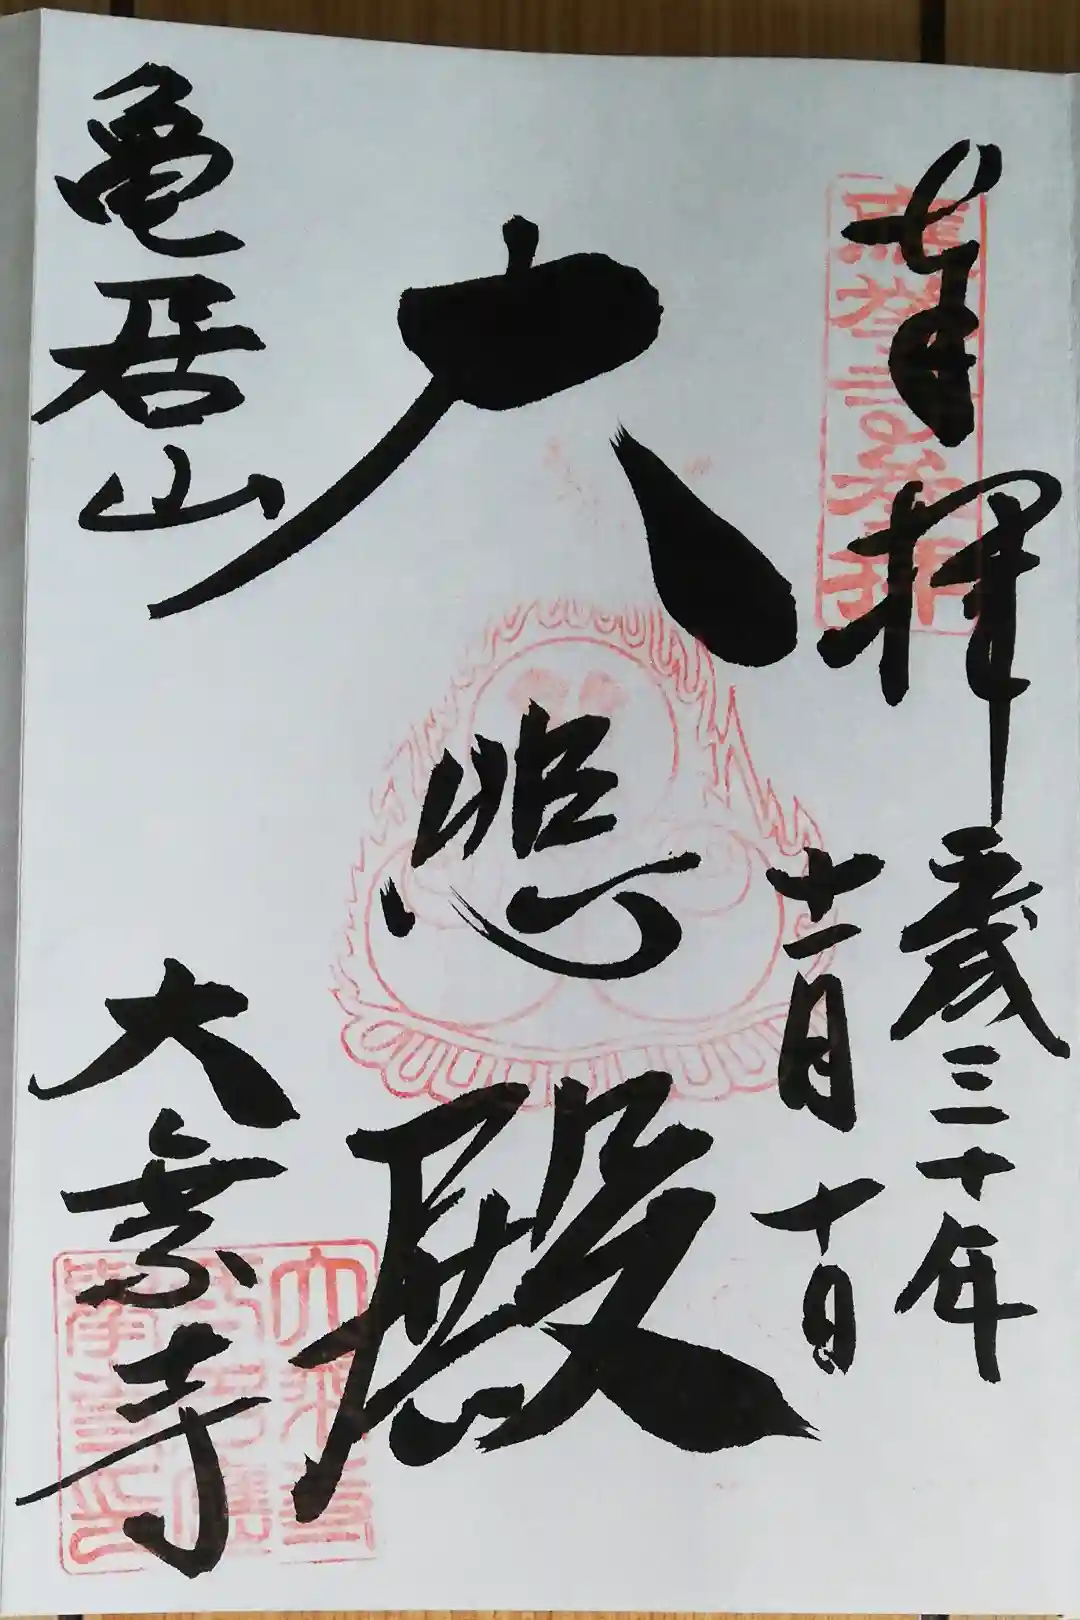 奉拝
平成三十年
十一月十日
大悲殿
亀居山
大乗寺